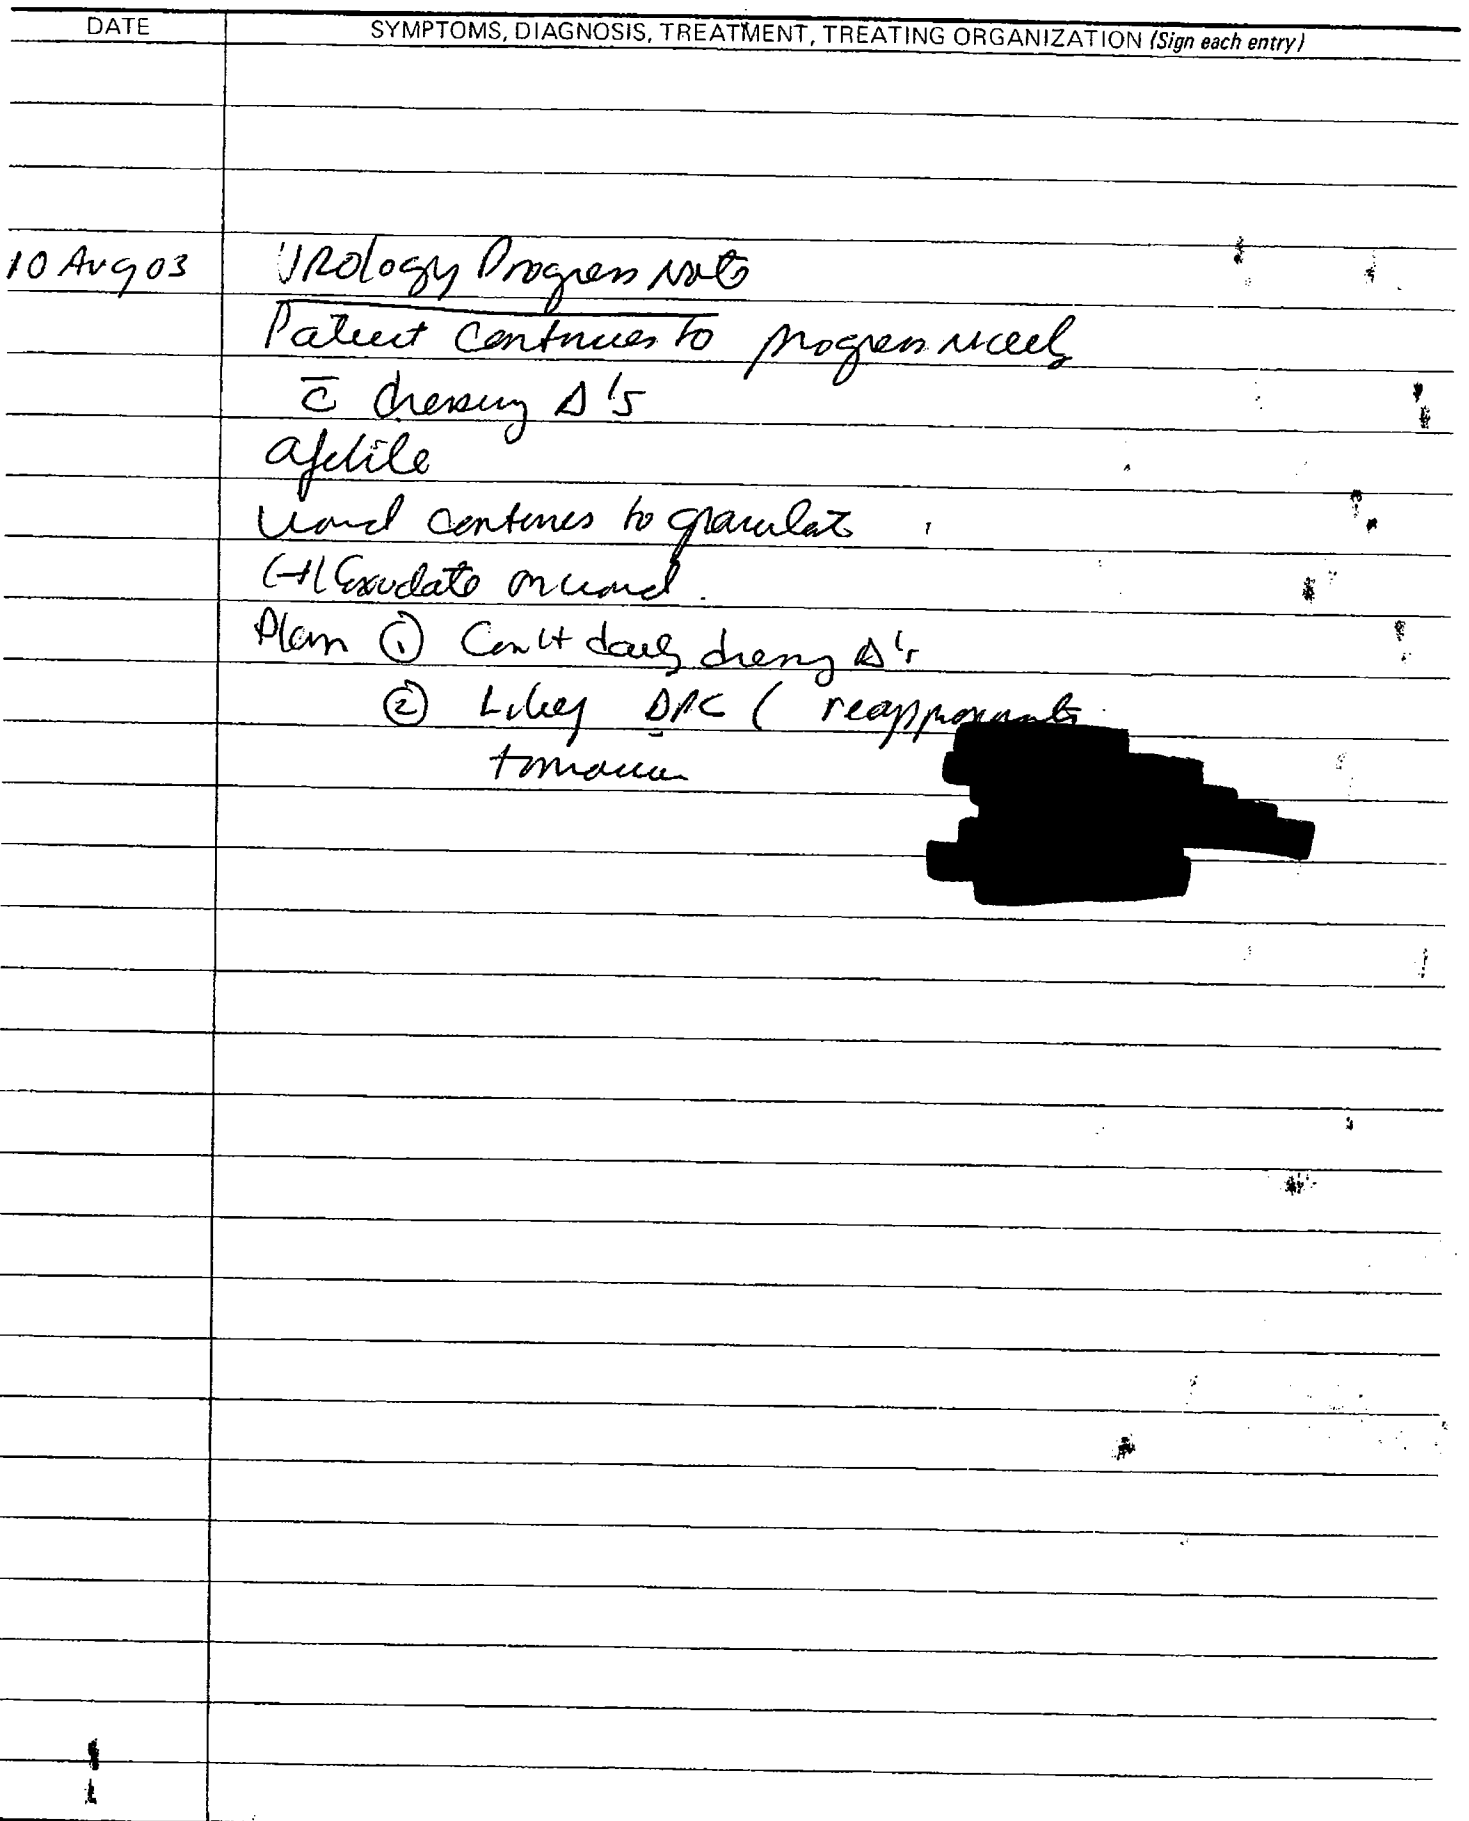 DATE SYMPTOMS, DIAGNOSIS, TREATMENT, TREATING ORGANIZATION (Sign each entry)
10 Aug 03 Urology Progress Note
Patient continues to progress nicely
c̄ dressing Δ's
afebrile
wound continues to granulate
Exudate on wound.
Plan ① Con't daily dressing Δ's
② Likely DPC (
tomorrow